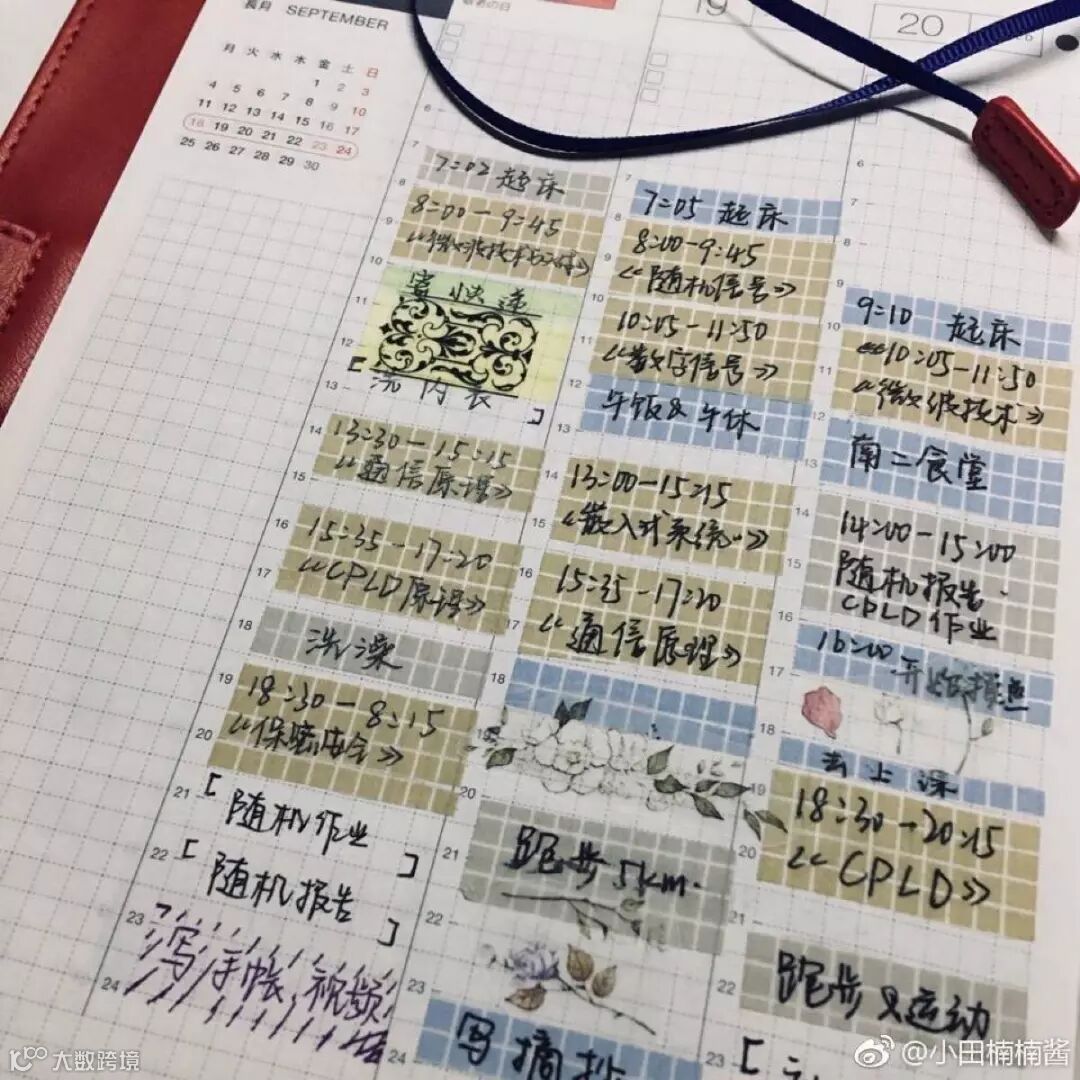 長月 SEPTEMBER
月 火 水 木 金 土 日
1 2 3
4 5 6 7 8 9 10
11 12 13 14 15 16 17
18 19 20 21 22 23 24
25 26 27 28 29 30
敬老の日
6
7
7:02 起床
8
8:00-9:45
9
10
寄快递
11
12
洗内衣
13
14
13:30-15:15
《通信原理》
15
16
15:35-17:20
17
《CPLD原理》
18
洗澡
19
18:30-8:15
20
《保险安全》
21
[随机作业]
22
[随机报告]
23
写手帐,视频
24
19
7
7:05 起床
8
8:00-9:45
9
《随机信号》
10
10:05-11:50
11
《数字信号》
12
午饭&午休
13
14
13:00-15:15
15
《嵌入式系统》
16
15:35-17:20
17
《通信原理》
18
19
20
21
跑步 5km.
22
23
写摘抄
24
20
6
7
8
9
9:10 起床
10
10:05-11:50
11
《微波技术》
12
南二食堂
13
14
14:00-15:00
随机报告.
15
CPLD作业
16
16:00
17
18
去上课
19
18:30-20:15
20
《CPLD》
21
22
跑步&运动
23
大数跨境
@小田楠楠酱